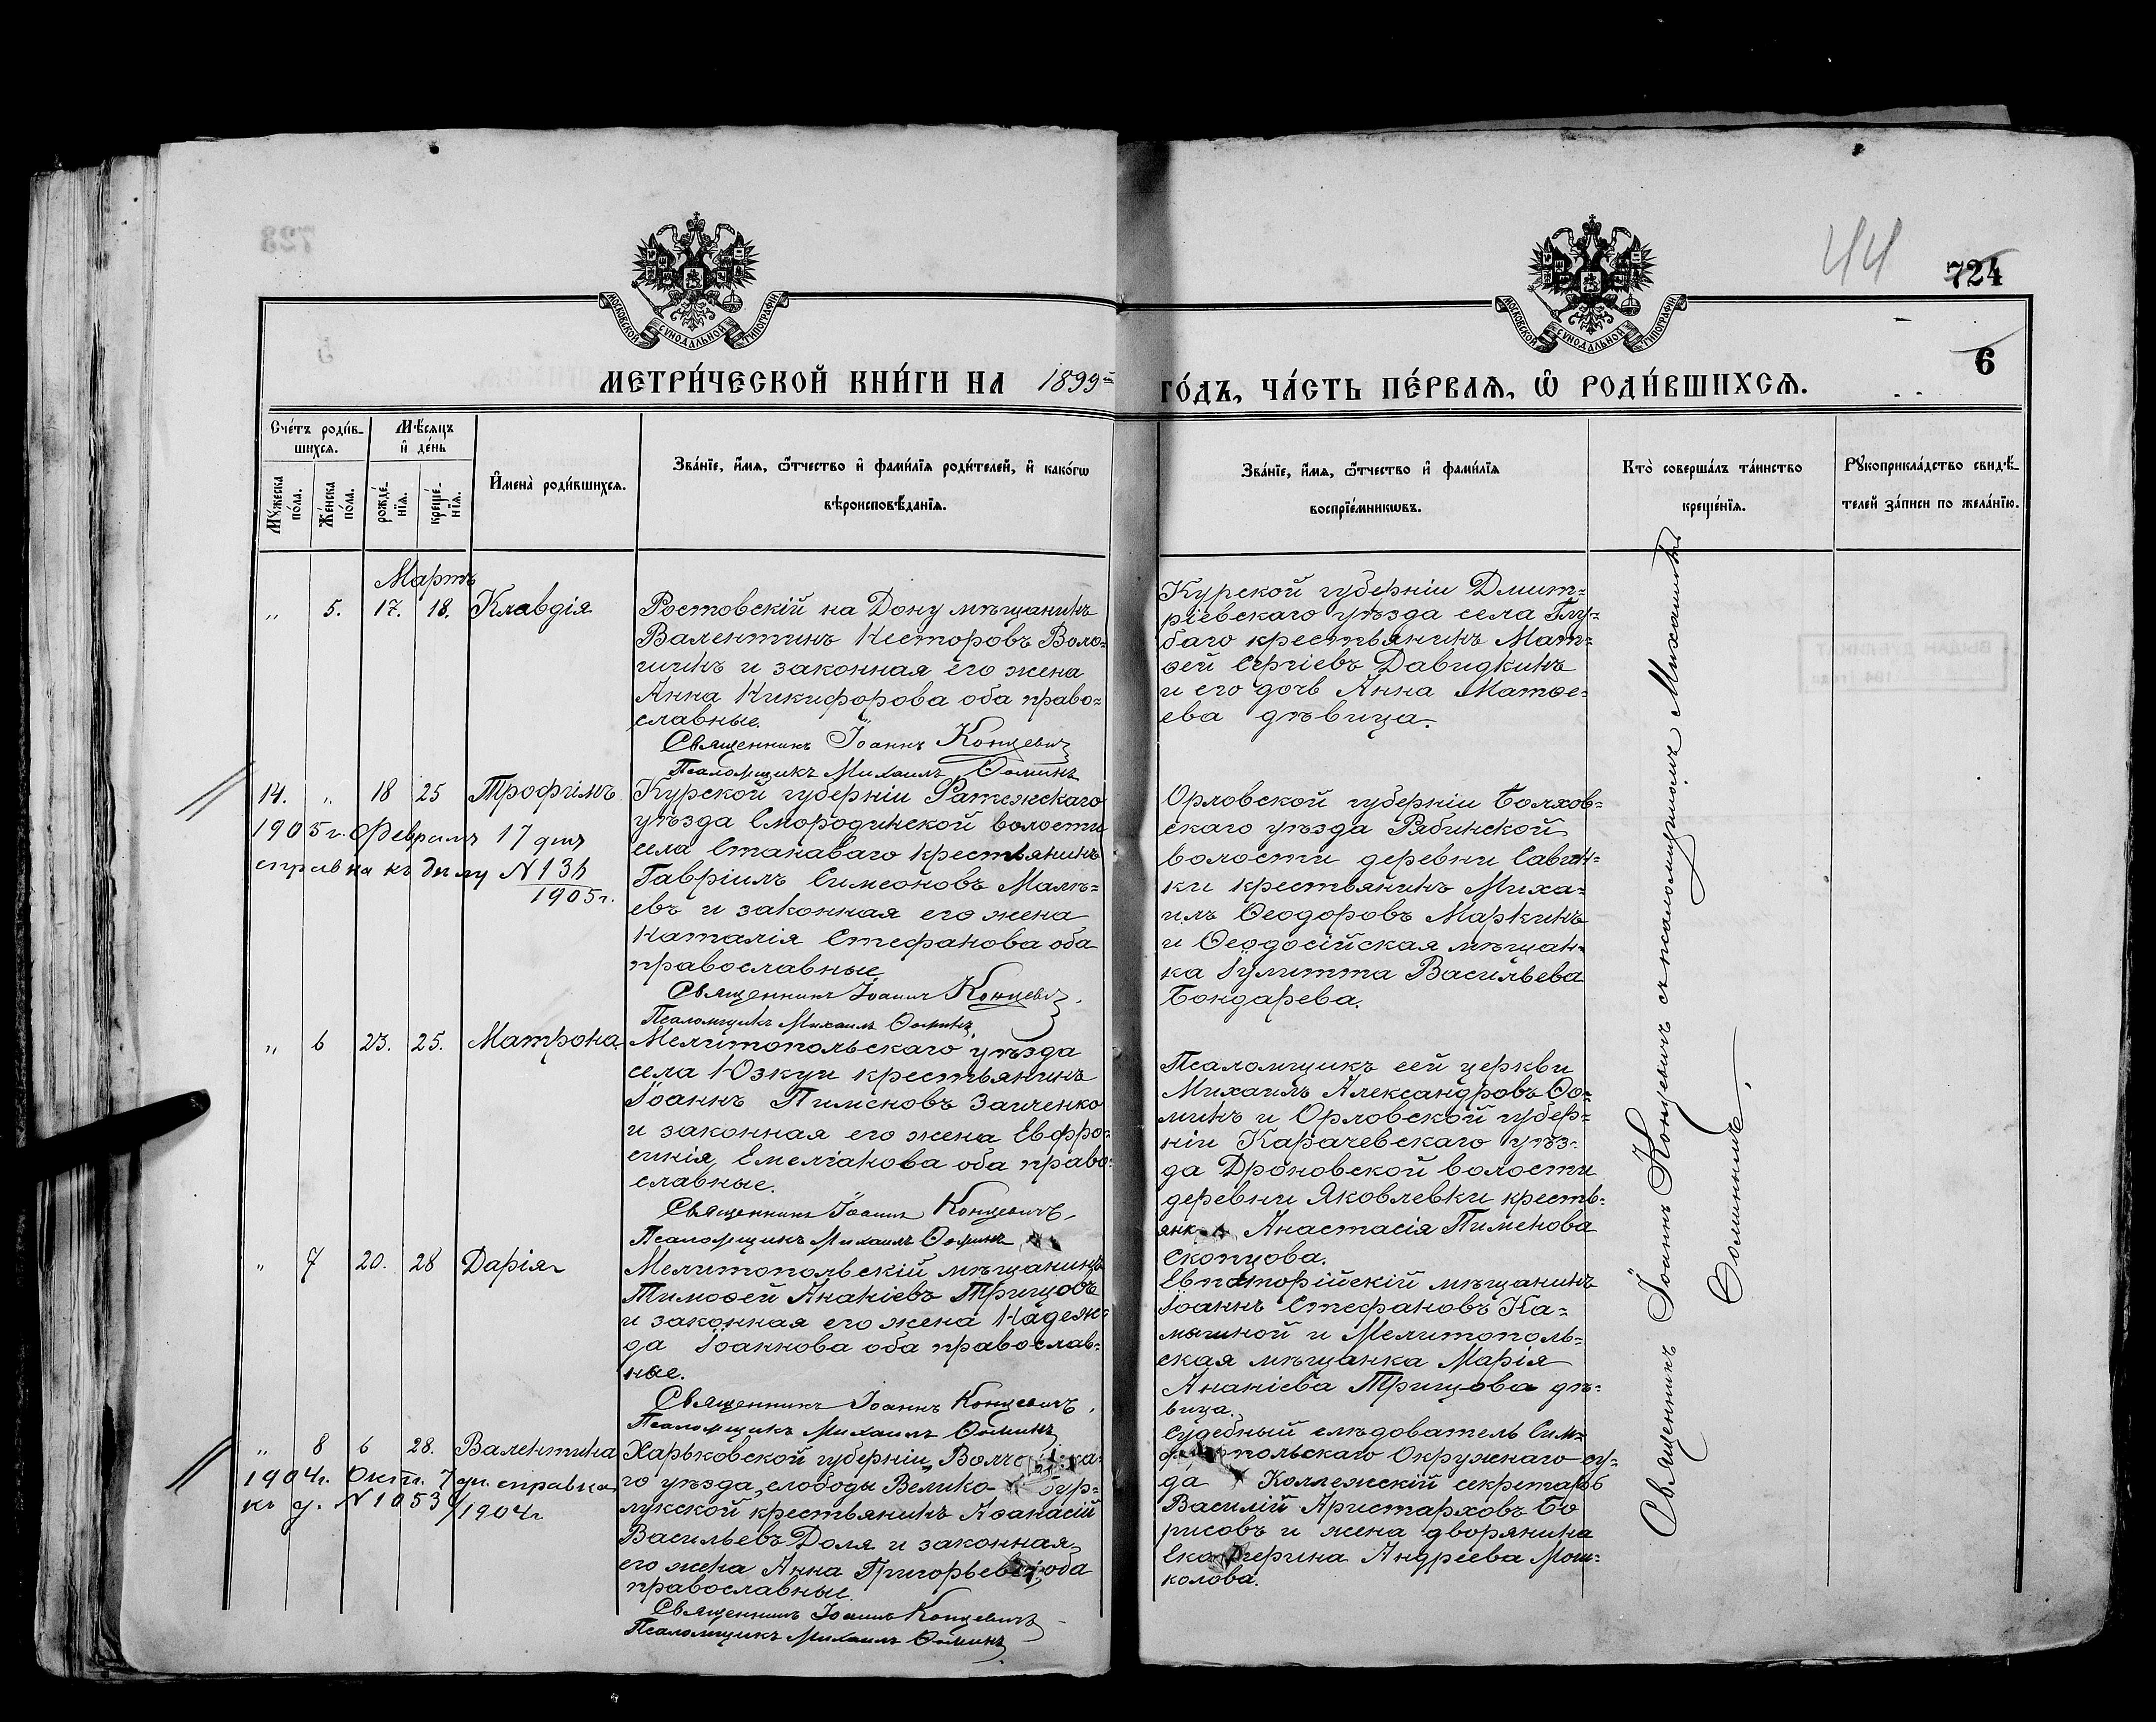 44
724
6
МОСКОВСКОЙ СѴНОДАЛЬНОЙ ТИПОГРАФІИ
МОСКОВСКОЙ СѴНОДАЛЬНОЙ ТИПОГРАФІИ
МЕТРИ́ЧЕСКОЙ КНИ́ГИ НА 1899 ГО́ДЪ, ЧА́СТЬ ПЕ́РВАѦ, Ѡ҆ РОДИ́ВШИХСѦ.
Сче́тъ роди́в-
шихсѧ.
Мꙋ́жеска по́ла.
Же́нска по́ла.
Мѣ́сѧцъ
и҆ де́нь
рожде́-
нїѧ.
креще́-
нїѧ.
И҆мена̀ роди́вшихсѧ.
Зва́нїе, и҆́мѧ, ѻ҆́тчество и҆ фами́лїѧ роди́телей, и҆ како́гѡ
вѣроисповѣ́данїѧ.
Зва́нїе, и҆́мѧ, ѻ҆́тчество и҆ фами́лїѧ
воспрїе́мникѡвъ.
Кто̀ соверша́лъ та́инство
креще́нїѧ.
Рꙋкоприкла́дство свидѣ́-
телей за́писи по жела́нїю.
Мартъ
„ 5. 17. 18. Клавдія
Ростовскій на Дону мѣщанинъ
Валентинъ Несторовъ Воло=
шинъ и законная его жена
Анна Никифорова оба право=
славные.
Священникъ Іоаннъ Концевичъ
Псаломщикъ Михаилъ Ѳоминъ
Курской губерніи Дмит=
ріевскаго уѣзда села Глу=
баго крестьянинъ Мат=
ѳей Сергіевъ Давидкинъ
и его дочь Анна Матѳе=
ева дѣвица.
14. „ 18 25 Трофимъ
1905 г. Февраля 17 дня
справка къ дѣлу N 136
1905 г.
Курской губерніи Ратежскаго
уѣзда Смородинской волости
села Станаваго крестьянинъ
Гавріилъ Симеоновъ Малѣ=
евъ и законная его жена
Наталія Стефанова оба
православные.
Священникъ Іоаннъ Концевичъ
Псаломщикъ Михаилъ Ѳоминъ
Орловской губерніи Болхов=
скаго уѣзда Рябинской
волости деревни Савин=
ки крестьянинъ Миха=
илъ Ѳеодоровъ Маркинъ
и Ѳеодосійская мѣщан=
ка Іулитта Васильева
Бондарева.
„ 6 23. 25. Матрона
Мелитопольскаго уѣзда
села Юзкуи крестьянинъ
Іоаннъ Пименовъ Заиченко
и законная его жена Евфро=
синія Емеліанова оба право=
славные.
Священникъ Іоаннъ Концевичъ
Псаломщикъ Михаилъ Ѳоминъ
Псаломщикъ сей церкви
Михаилъ Александровъ Ѳо=
минъ и Орловской губер=
ніи Карачевскаго уѣз=
да Дроновской волости
деревни Яковлевки кресть=
янка Анастасія Пименова
Скопцова.
„ 7 20. 28 Дарія
Мелитопольскій мѣщанинъ
Тимоѳей Ананіевъ Трищовъ
и законная его жена Надеж=
да Іоаннова оба православ=
ные.
Священникъ Іоаннъ Концевичъ
Псаломщикъ Михаилъ Ѳоминъ
Евпаторійскій мѣщанинъ
Іоаннъ Стефановъ Ка=
мышной и Мелитополь=
ская мѣщанка Марія
Ананіева Трищова дѣ=
вица.
„ 8 6 28. Валентина
1904 г. Окт. 7 дн. справка
къ д. N 1053
1904 г
Харьковской губерніи
го уѣзда слободы Велико-Бур=
лукской крестьянинъ Аѳанасій
Васильевъ Доля и законная
его жена Анна Григорьева оба
православные.
Священникъ Іоаннъ Концевичъ
Псаломщикъ Михаилъ Ѳоминъ
Судебный слѣдователь Сим=
польскаго Окружнаго су=
да Коллежскій секретарь
Василій Аристарховъ Бо
рисовъ и жена дворянина
Екатерина Андреева Мош=
колова.
Священникъ Іоаннъ Концевичъ съ псаломщикомъ Михаиломъ
Ѳоминымъ.